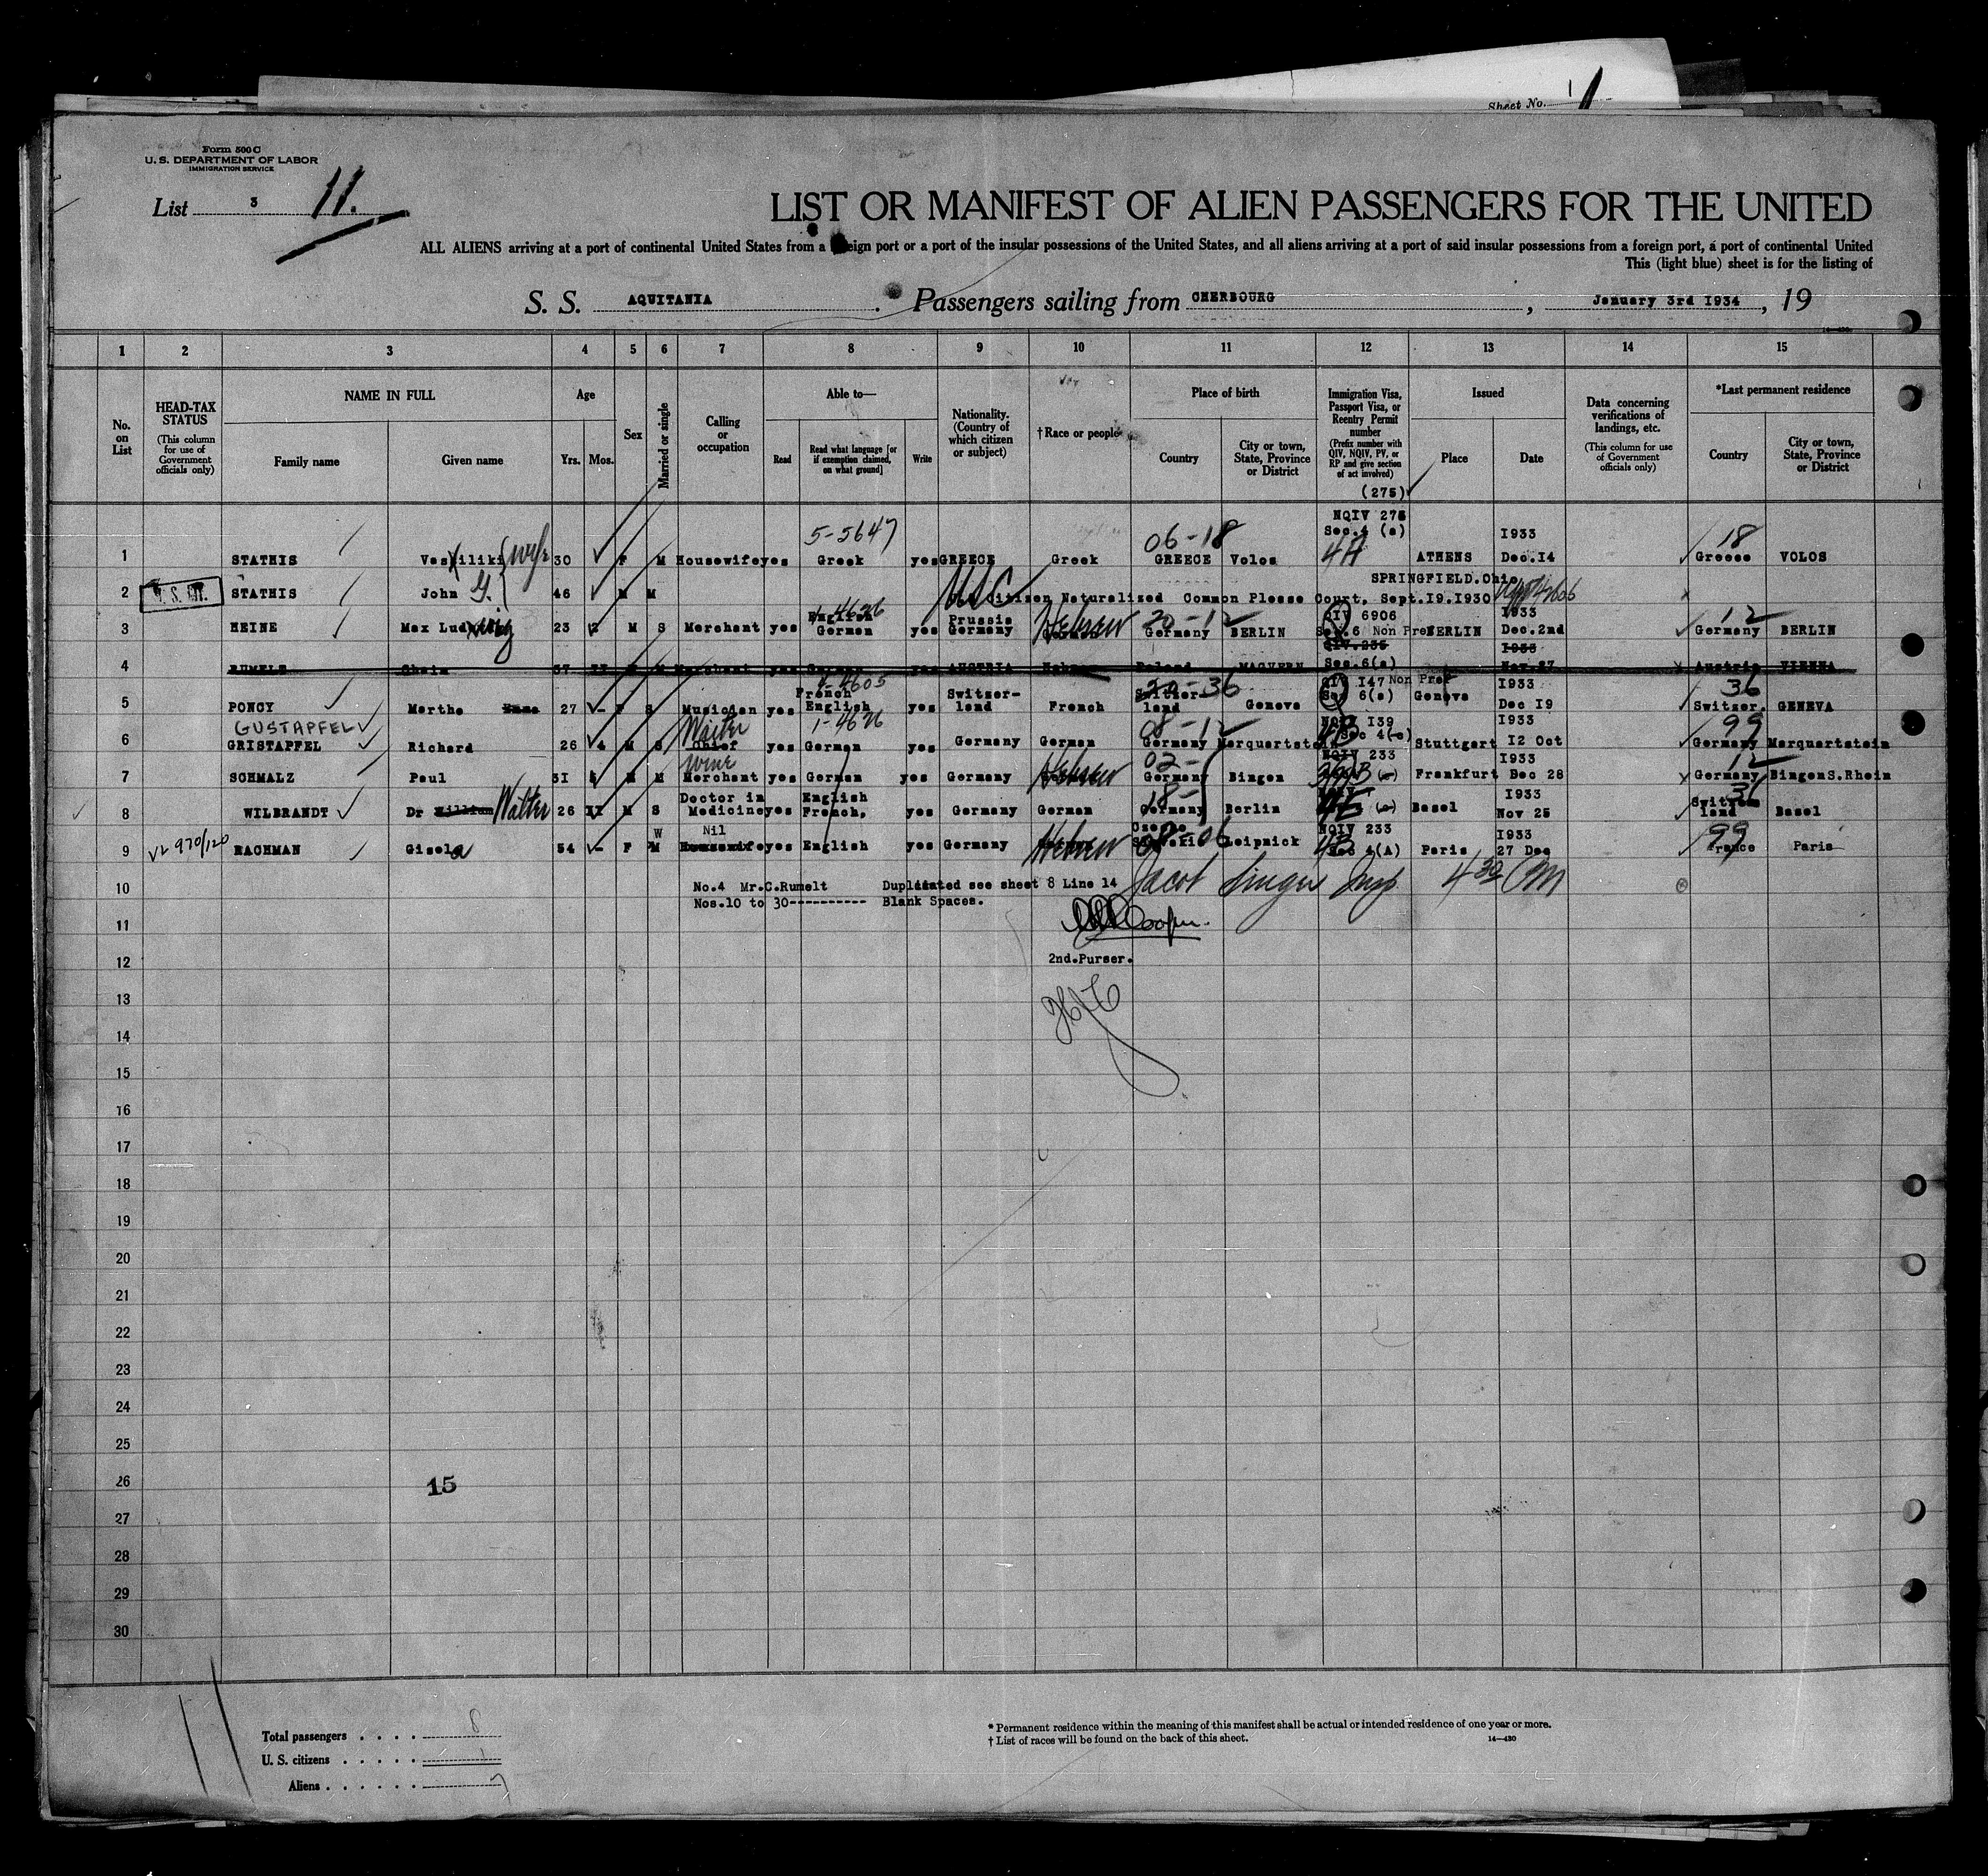 Sheet No. 1
Form 500 C
U. S. DEPARTMENT OF LABOR
IMMIGRATION SERVICE
List 3 11.
LIST OR MANIFEST OF ALIEN PASSENGERS FOR THE UNITED
ALL ALIENS arriving at a port of continental United States from a foreign port or a port of the insular possessions of the United States, and all aliens arriving at a port of said insular possessions from a foreign port, a port of continental United
This (light blue) sheet is for the listing of
S. S. AQUITANIA. Passengers sailing from CHERBOURG, January 3rd 1934, 19
1 2 3 4 5 6 7 8 9 10 11 12 13 14 15
No. on List
HEAD-TAX STATUS (This column for use of Government officials only)
NAME IN FULL
Family name Given name
Age Yrs. Mos.
Sex
Married or single
Calling or occupation
Able to—
Read Read what language [or if exemption claimed, on what ground] Write
Nationality. (Country of which citizen or subject)
† Race or people
Place of birth
Country City or town, State, Province or District
Immigration Visa, Passport Visa, or Reentry Permit number (Prefix number with QIV, NQIV, PV, or RP and give section of act involved)
(275)
Issued
Place Date
Data concerning verifications of landings, etc. (This column for use of Government officials only)
*Last permanent residence
Country City or town, State, Province or District
5-5647 06-18 NQIV 275 Sec.4 (a) I933 18
1 STATHIS Vasiliki wife 30 F M Housewife yes Greek yes GREECE Greek GREECE Volos 4A ATHENS Dec.14 Greece VOLOS
SPRINGFIELD.Ohio
2 STATHIS John G. 46 M M USC Citizen Naturalized Common Please Court, Sept.I9.I930
English Prussia QIV 6906 I933 12
3 HEINE Max Ludwig 23 2 M S Merchant yes German yes Germany Hebrew Germany BERLIN Sec.6 Non Pref BERLIN Dec.2nd Germany BERLIN
QIV.235 I933
4 RUMELT Chaim 37 II M M Merchant yes German yes AUSTRIA Hebrew Poland Sec.6(a) Nov.27 Austria VIENNA
French Switzer- 36 QIV I47 Non Pref I933 36
5 PONCY Marthe Emma 27 - F S Musician yes English yes land French land Geneva Sec 6(a) Geneva Dec I9 Switzer. GENEVA
GUSTAPFEL Waiter 1-4626 08-12 NQIV I39 I933 99
6 GRISTAPFEL Richard 26 4 M S Chief yes German yes Germany German Germany Marquartstein Sec 4(c) Stuttgart I2 Oct Germany Marquartstein
wine 02- NQIV 233 I933 12
7 SCHMALZ Paul 3I M M Merchant yes German yes Germany Hebrew Germany Bingen Frankfurt Dec 28 Germany BingenS.Rhein
Doctor in English 18- I933 Switzer
8 WILBRANDT Dr William Walter 26 II M S Medicine yes French, yes Germany German Germany Berlin Basel Nov 25 land Basel
W Nil NQIV 233 I933 99
9 RACHMAN Gisela 54 - F M Housewife yes English yes Germany Hebrew Leipnick Sec 4(A) Paris 27 Dec France Paris
10 No.4 Mr.C.Rumelt Duplicated see sheet 8 Line 14 Jacob Singer Insp. 4 30 PM
Nos.10 to 30---------- Blank Spaces.
11 Cooper.
12 2nd.Purser.
13
14
15
16
17
18
19
20
21
22
23
24
25
26 15
27
28
29
30
Total passengers . . . . 8
U. S. citizens . . . . . 1
Aliens . . . . . . 7
* Permanent residence within the meaning of this manifest shall be actual or intended residence of one year or more.
† List of races will be found on the back of this sheet. 14—430